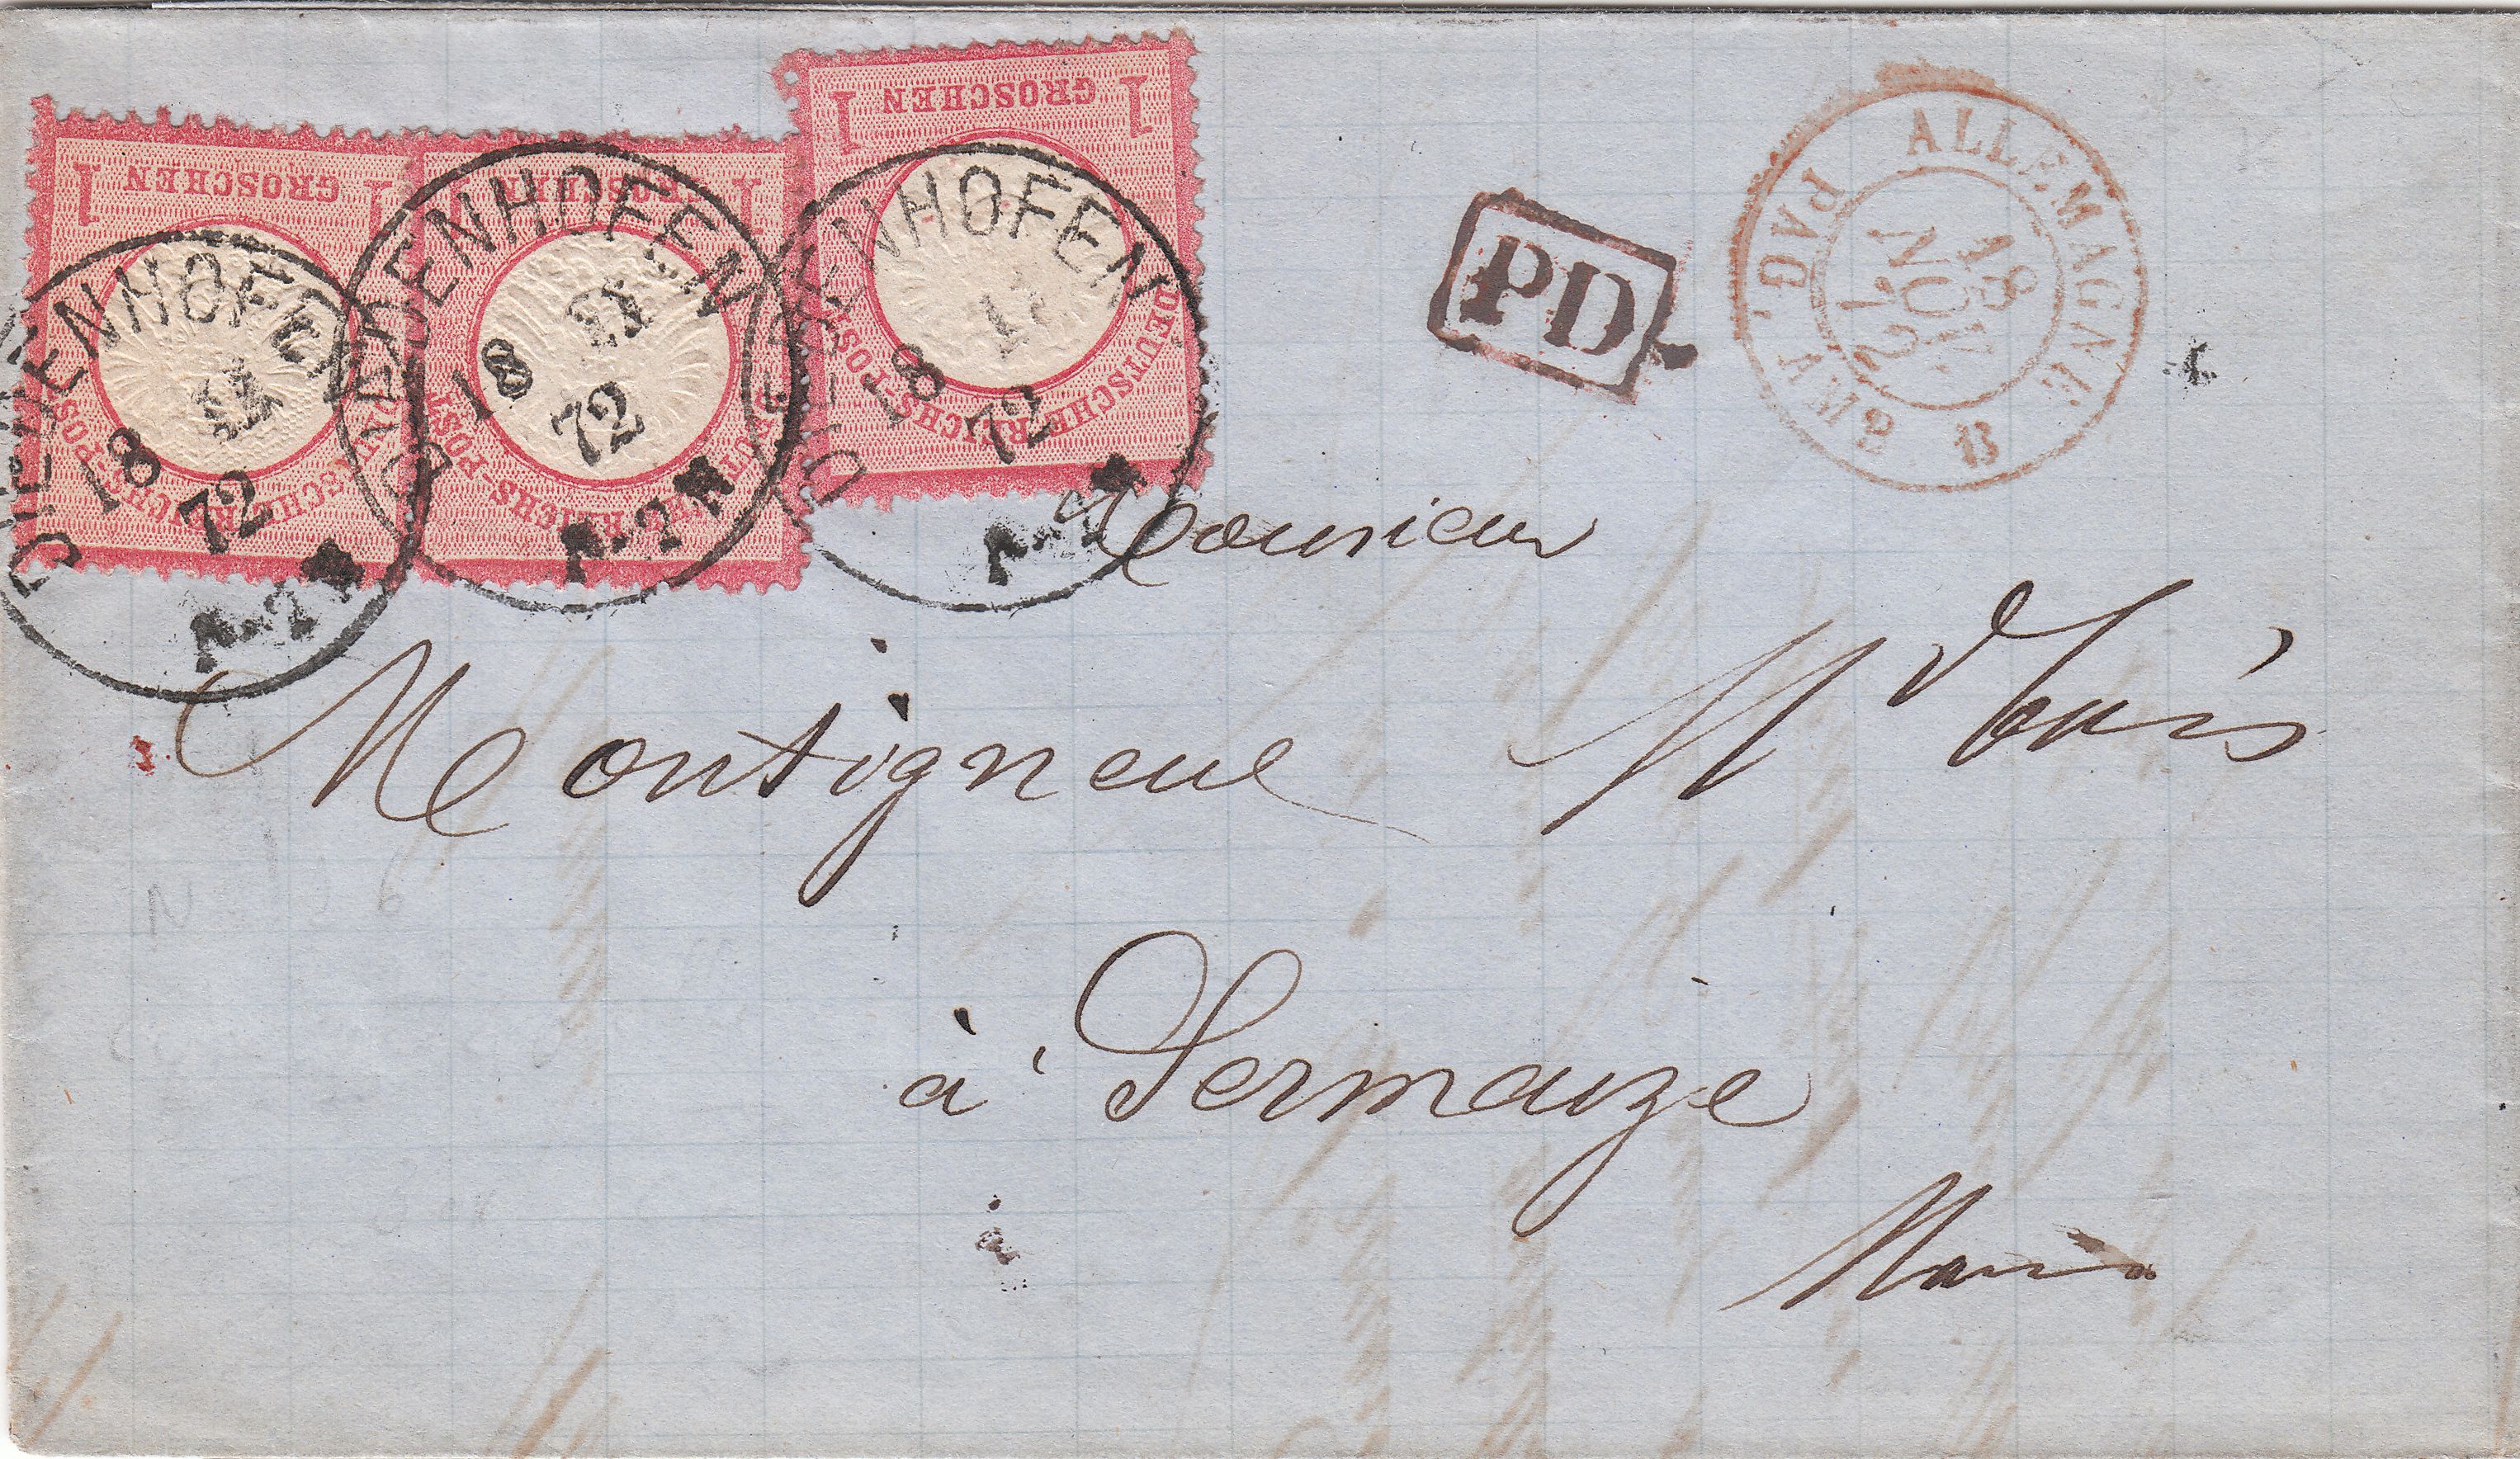 1 GROSCHEN 1
DEUTSCHE REICHS-POST
1 GROSCHEN 1
DEUTSCHE REICHS-POST
1 GROSCHEN 1
DEUTSCHE REICHS-POST
DIEDENHOFEN
18 11
72
DIEDENHOFEN
18 11
72
A-2 N
DIEDENHOFEN
18 11
72
PD
ALLEMAGNE
PAG. A AM 8
18
NOV.
72
Monsieur
Montigneul Md bois
à Sermaize
Marne